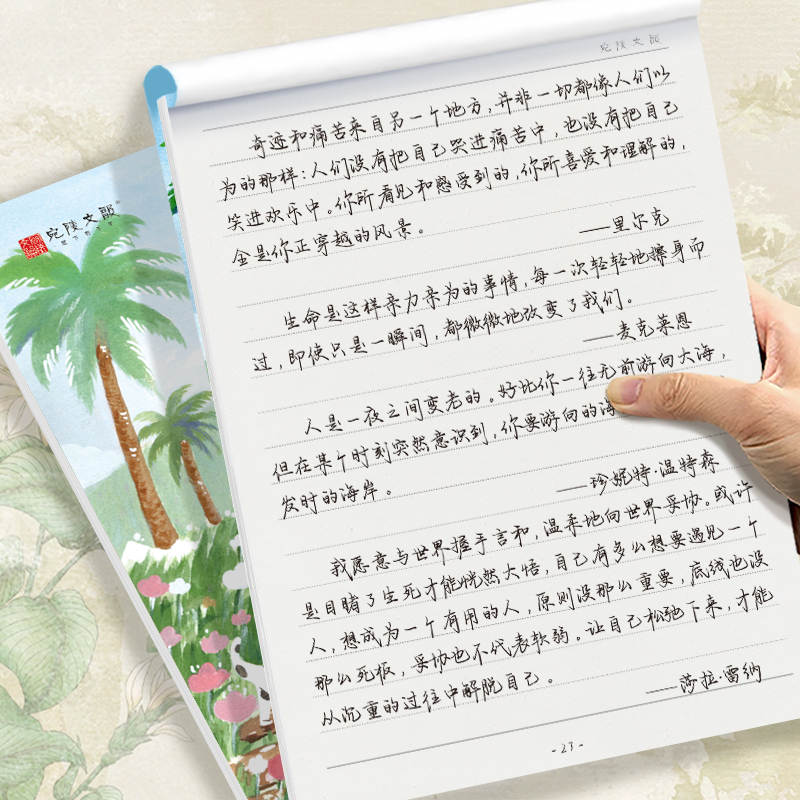 宛陵文殿
宛陵文殿
奇迹和痛苦来自另一个地方，并非一切都像人们以
为的那样：人们没有把自己哭进痛苦中，也没有把自己
笑进欢乐中。你所看见和感受到的，你所喜爱和理解的，
全是你正穿越的风景。
——里尔克
生命是这样亲力亲为的事情，每一次轻轻地擦身而
过，即使只是一瞬间，都微微地改变了我们。
——麦克莱恩
人是一夜之间变老的。好比你一往无前游向大海，
但在某个时刻突然意识到，你要游向的海
发时的海岸。
——珍妮特·温特森
我愿意与世界握手言和，温柔地向世界妥协。或许
是目睹了生死才能恍然大悟，自己有多么想要遇见一个
人，想成为一个有用的人，原则没那么重要，底线也没
那么死板，妥协也不代表软弱。让自己松弛下来，才能
从沉重的过往中解脱自己。
——莎拉·雷纳
-23-